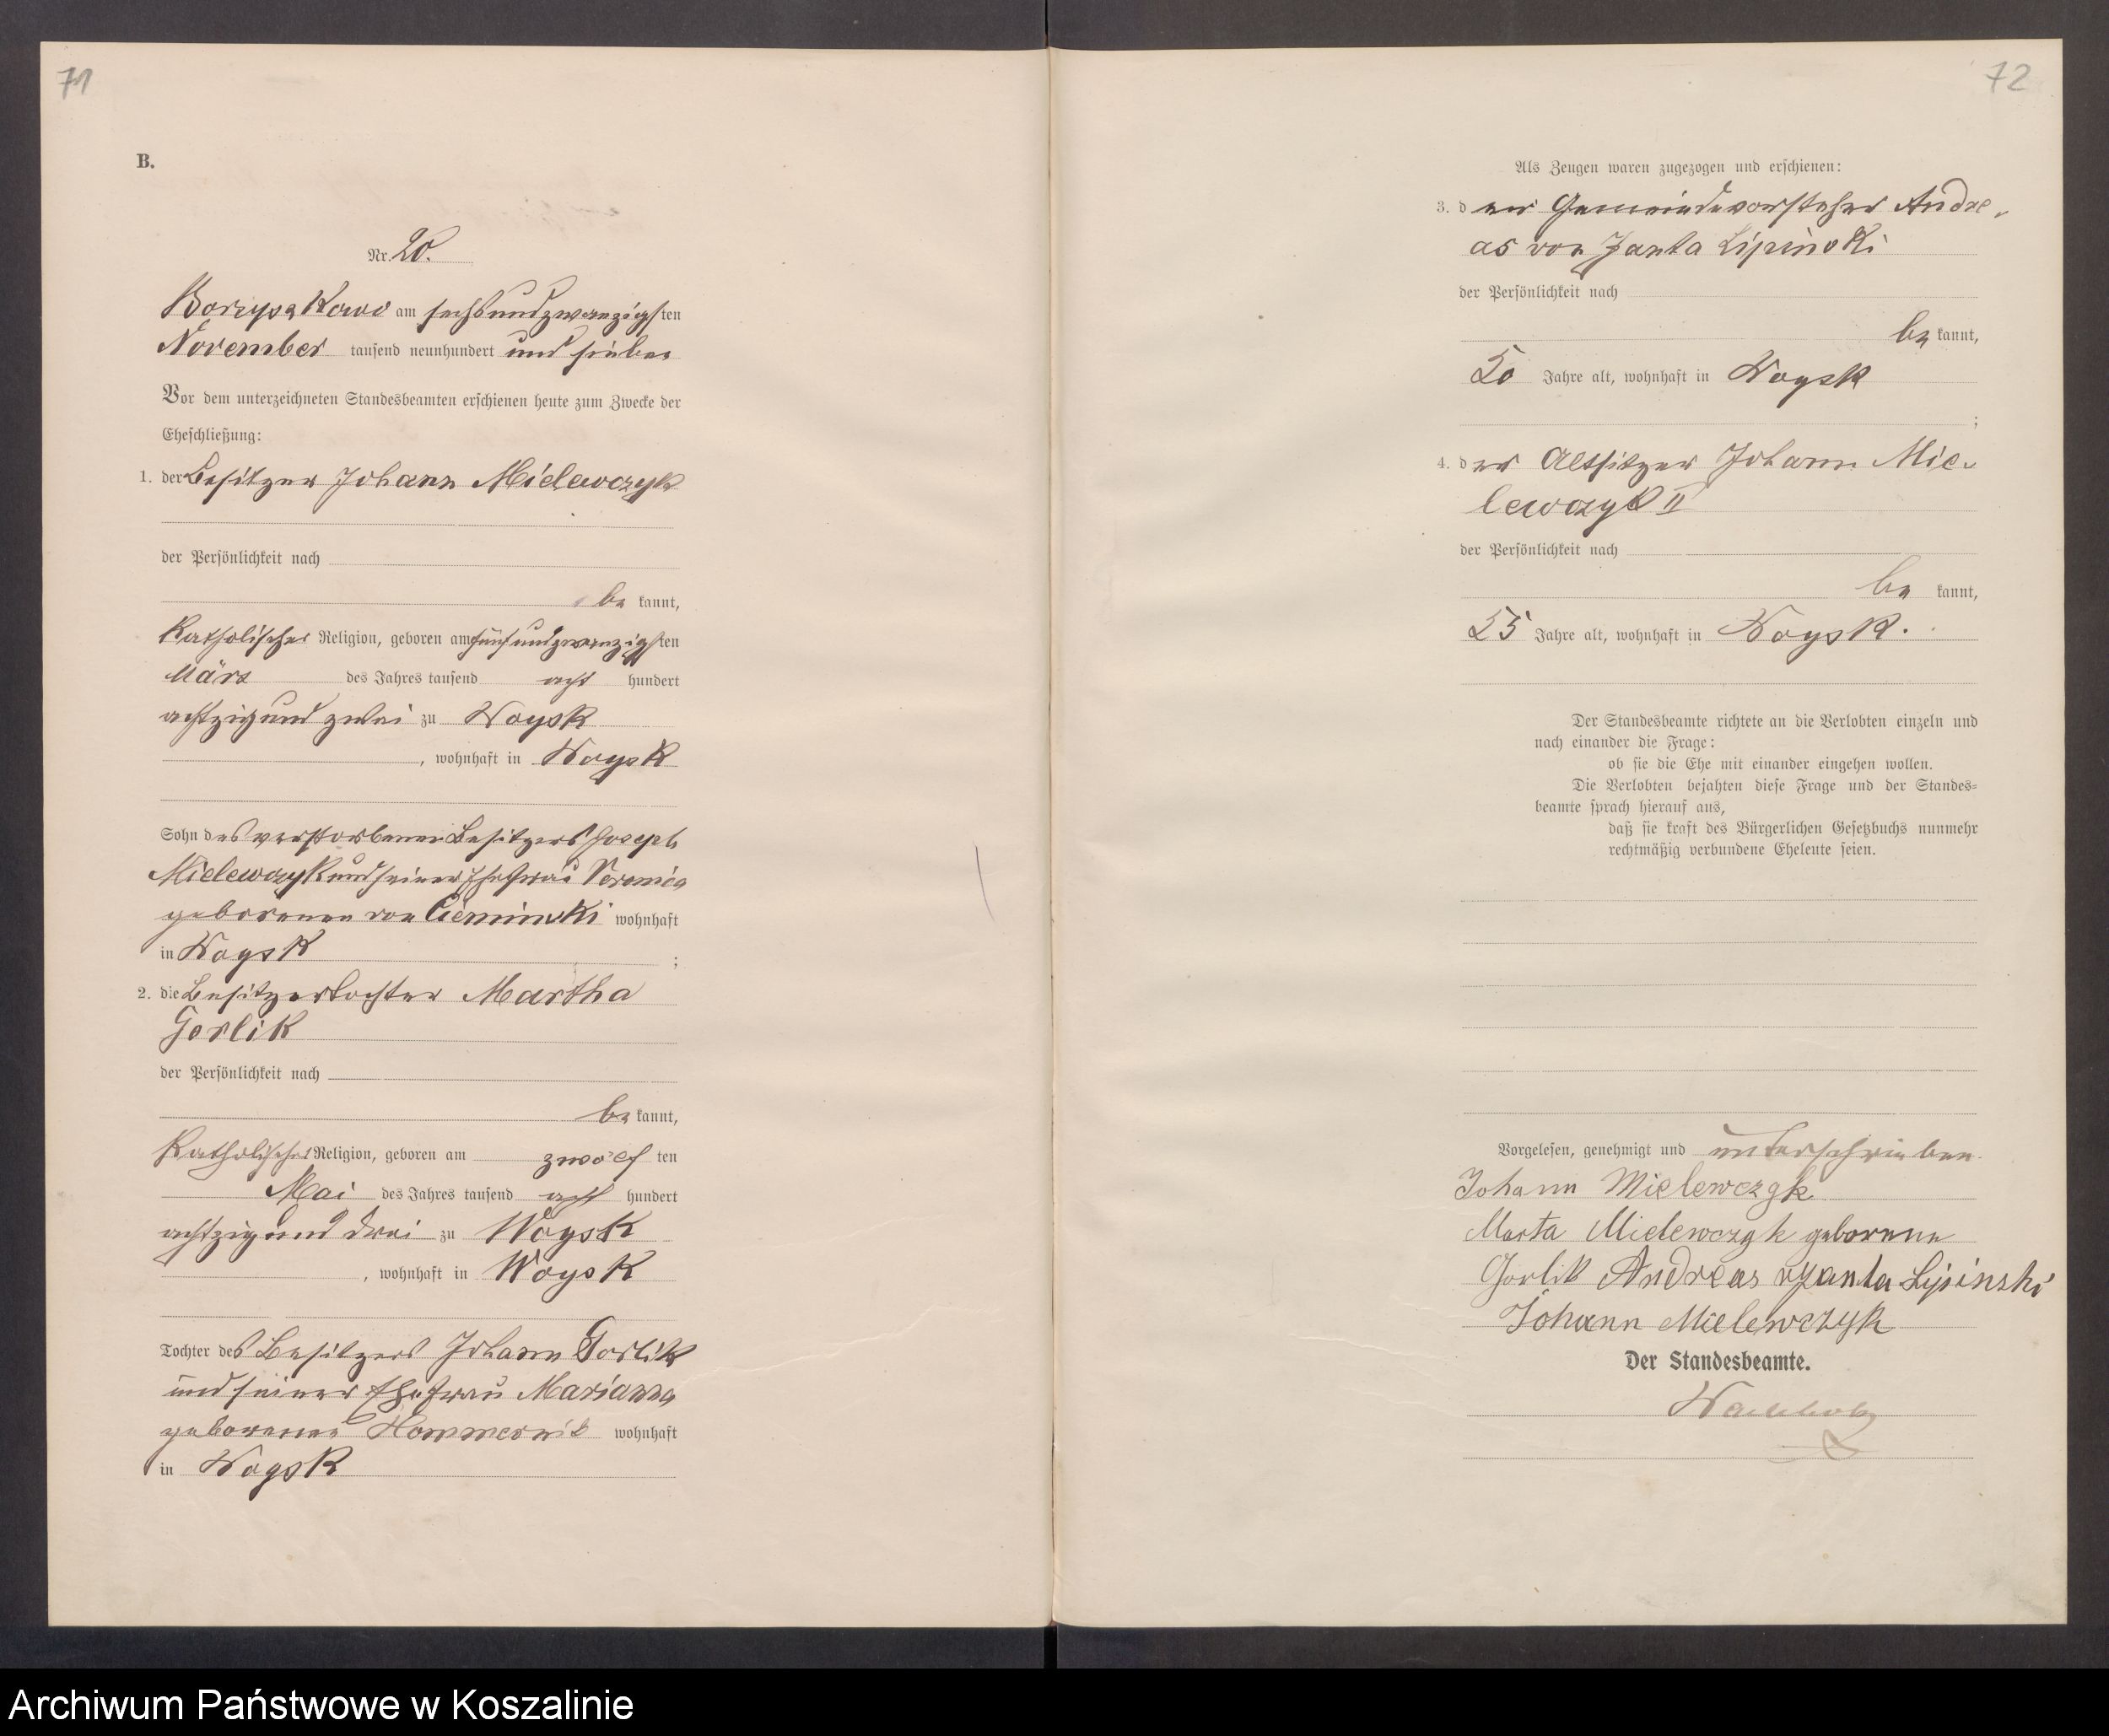 71
B.
Nr. 20.
Borzyskowo am sechsundzwanzigsten
November tausend neunhundert und sieben
Vor dem unterzeichneten Standesbeamten erschienen heute zum Zwecke der
Eheschließung:
1. der Besitzer Johann Mielewczyk
der Persönlichkeit nach
be kannt,
katholischer Religion, geboren am fünfundzwanzigsten
März des Jahres tausend acht hundert
achtzig und zwei zu Woysk
, wohnhaft in Woysk
Sohn des verstorbenen Besitzers Joseph
Mielewczyk und seiner Ehefrau Veronica
geborenen von Cieminski wohnhaft
in Woysk ;
2. die Besitzertochter Martha
Gorlik
der Persönlichkeit nach
be kannt,
katholischer Religion, geboren am zwölf ten
Mai des Jahres tausend acht hundert
achtzig und drei zu Woysk
, wohnhaft in Woysk
Tochter des Besitzers Johann Gorlik
und seiner Ehefrau Marianna
geborenen wohnhaft
in Woysk
72
Als Zeugen waren zugezogen und erschienen:
3. der Gemeindevorsteher Andre-
as von Janta Lipinski
der Persönlichkeit nach
be kannt,
50 Jahre alt, wohnhaft in Woysk
;
4. der Altsitzer Johann Mie-
lewczyk II
der Persönlichkeit nach
be kannt,
55 Jahre alt, wohnhaft in Woysk.
Der Standesbeamte richtete an die Verlobten einzeln und
nach einander die Frage:
ob sie die Ehe mit einander eingehen wollen.
Die Verlobten bejahten diese Frage und der Standes-
beamte sprach hierauf aus,
daß sie kraft des Bürgerlichen Gesetzbuchs nunmehr
rechtmäßig verbundene Eheleute seien.
Vorgelesen, genehmigt und unterschrieben.
Johann Mielewczyk
Marta Mielewczyk geborene
Gorlik Andreas v Janta Lipinski
Johann Mielewczyk
Der Standesbeamte.
Wachholz
Archiwum Państwowe w Koszalinie